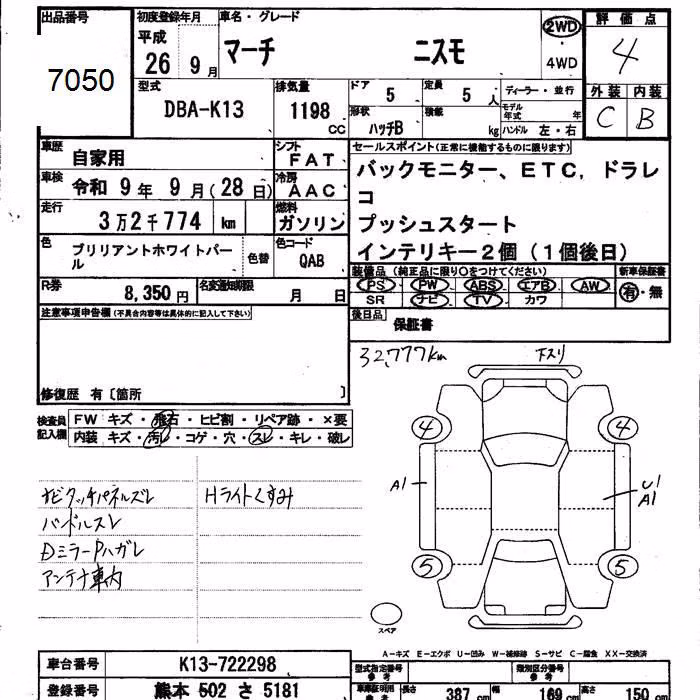 出品番号
7050
初度登録年月
平成
26 9月
車名・グレード
マーチ ニスモ
2WD
4WD
評価点
4
外装 内装
C B
型式
DBA-K13
排気量
1198
CC
ドア 5
定員 5 人
ディーラー・並行
形状
ハッチB
積載
kg
モデル年式 年
ハンドル 左・右
車歴
自家用
シフト
FAT
車検
令和 9年 9月(28日)
冷房
AAC
走行
3万2千774 km
燃料
ガソリン
色
ブリリアントホワイトパール
色替
色コード
QAB
R券
8,350円
名変通知期限
月 日
セールスポイント(正常に機能するものに限ります)
バックモニター、ETC, ドラレ
コ
プッシュスタート
インテリキー2個(1個後日)
装備品(純正品に限り○をつけてください)
新車保証書
PS PW ABS エアB AW
SR ナビ TV カワ
有・無
後日品
保証書
注意事項申告欄(不具合内容等は具体的に記入して下さい)
修復歴 有〔箇所 〕
32,777km
下スリ
検査員
記入欄
FW キズ・飛石・ヒビ割・リペア跡・×要
内装 キズ・汚レ・コゲ・穴・スレ・キレ・破レ
ナビタッチパネルズレ
ハンドルスレ
DミラーPハガレ
アンテナ車内
Hライトくすみ
4
4
A1
U1
A1
5
5
スペア
A-キズ E-エクボ U-凹み W-補修跡 S-サビ C-腐食 XX-交換済
車台番号
K13-722298
登録番号
熊本 502 さ 5181
型式指定番号
参考
類別区分番号
参考
車庫証明用
参考
長さ 387 cm
幅 169 cm
高さ 150 cm